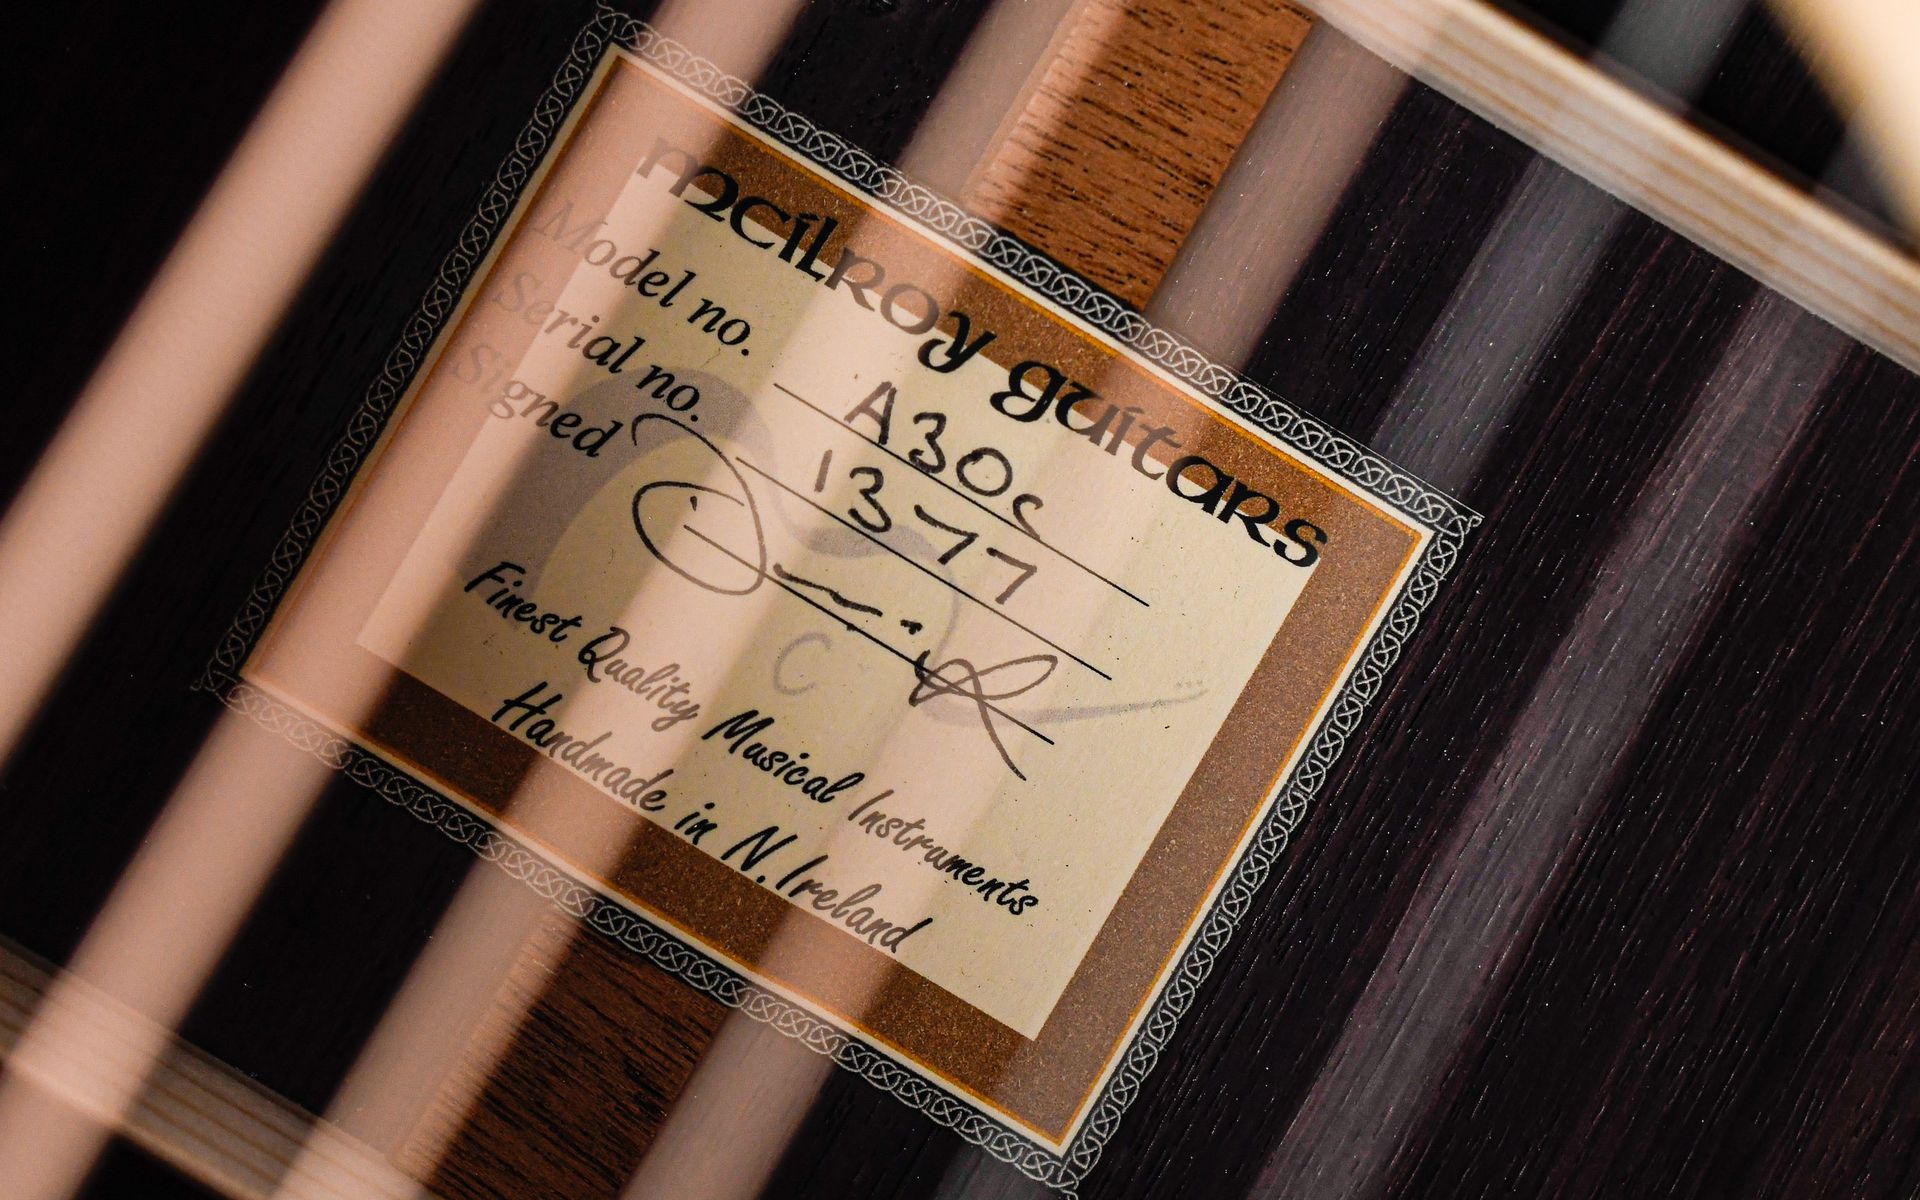 mcilroy guitars
Model no. A30c
Serial no. 1377
Signed
Finest Quality Musical Instruments
Handmade in N.Ireland